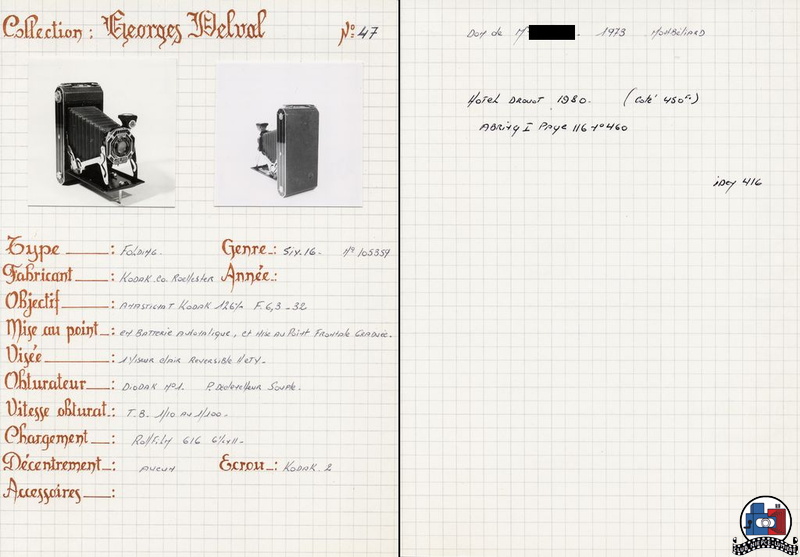 Collection : Georges Delval N° 47
Type : Folding. Genre : Six.16. N° 105357
Fabricant : Kodak.Co. Rochester Année :
Objectif : Anastigmat Kodak 126% F.6,3-32
Mise au point : en Batterie Automatique, et Mise au Point Frontale Graduée.
Visée : Viseur clair Reversible
Obturateur : Diodak N°1. P. Declencheur Souple.
Vitesse obturat. : T.B. 1/10 au 1/100.
Chargement : Rollfilm 616 6½x11-
Décentrement : aucun Ecrou : Kodak. 2
Accessoires :
Don de Mr 1973 Montbéliard
Hotel Drouot 1980. (Coté 450Frs)
Abring I Page 116 N°460
416